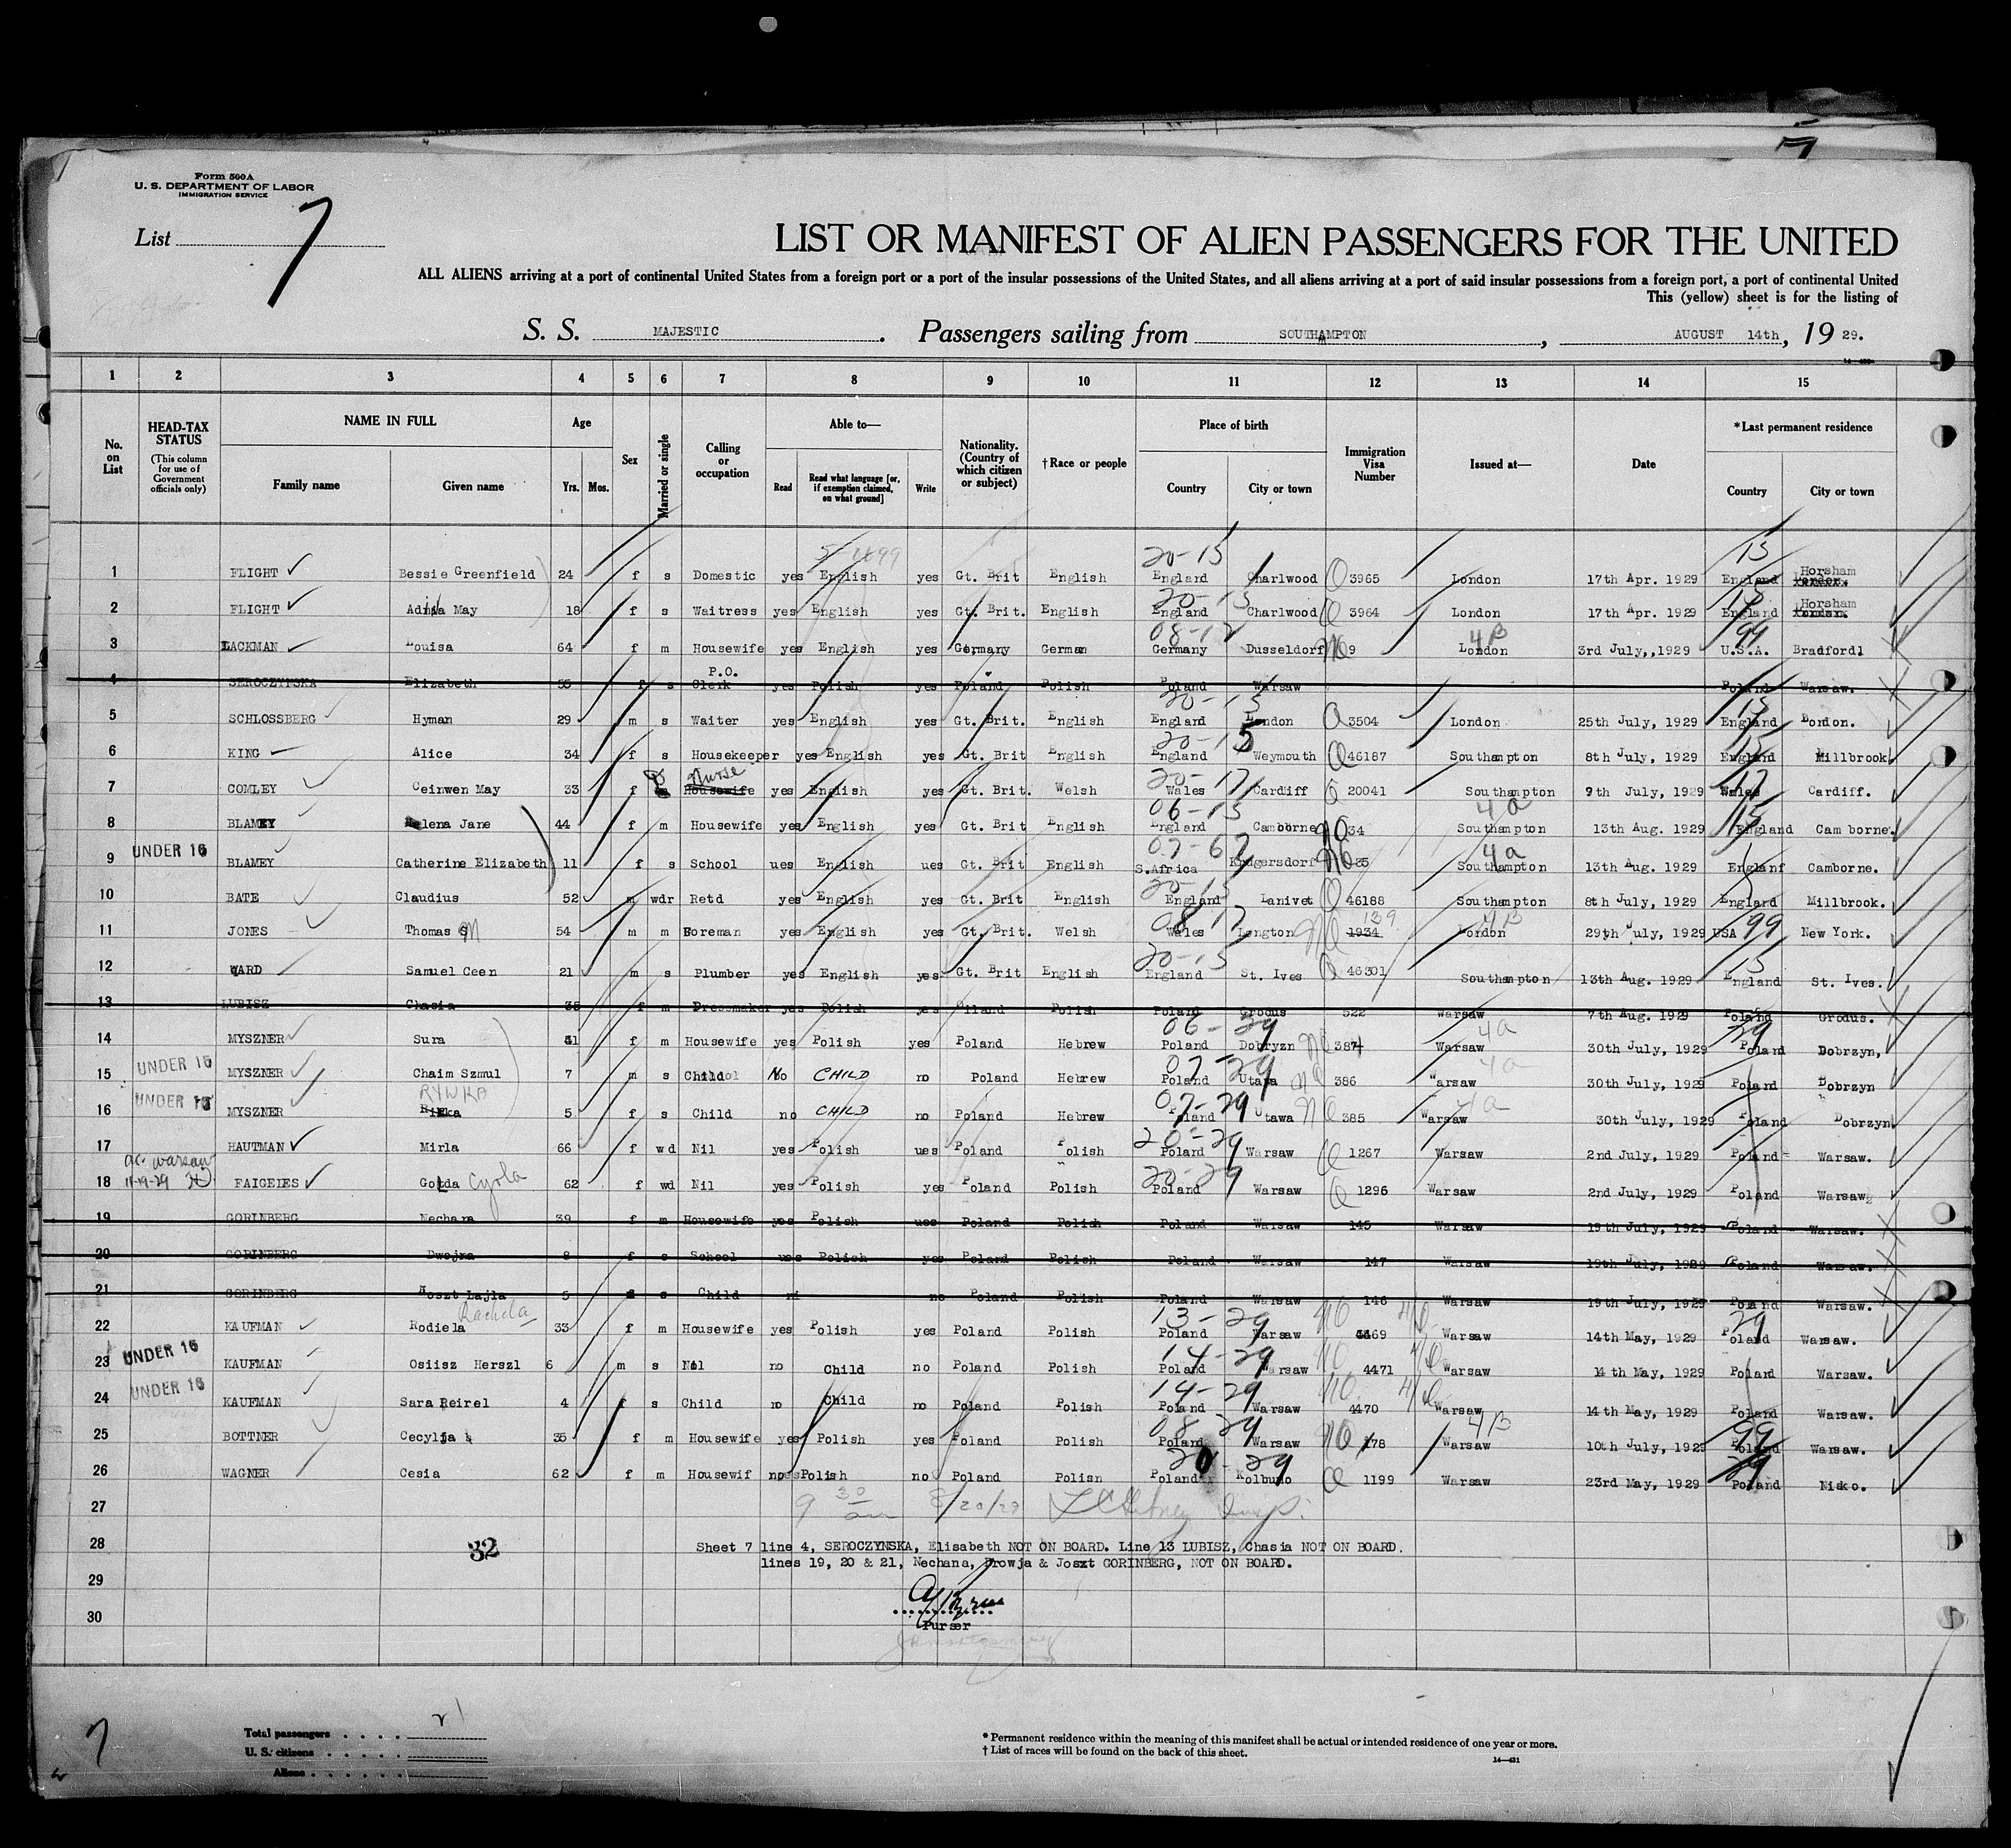 Form 500A
U. S. DEPARTMENT OF LABOR
IMMIGRATION SERVICE
List 7
LIST OR MANIFEST OF ALIEN PASSENGERS FOR THE UNITED
ALL ALIENS arriving at a port of continental United States from a foreign port or a port of the insular possessions of the United States, and all aliens arriving at a port of said insular possessions from a foreign port, a port of continental United
This (yellow) sheet is for the listing of
S. S. MAJESTIC. Passengers sailing from SOUTHAMPTON, AUGUST 14th, 19 29.
1 2 3 4 5 6 7 8 9 10 11 12 13 14 15
No. on List
HEAD-TAX STATUS (This column for use of Government officials only)
NAME IN FULL Family name Given name
Age Yrs. Mos.
Sex
Married or single
Calling or occupation
Able to— Read Read what language [or, if exemption claimed, on what ground] Write
Nationality. (Country of which citizen or subject)
†Race or people
Place of birth Country City or town
Immigration Visa Number
Issued at—
Date
*Last permanent residence Country City or town
1 FLIGHT Bessie Greenfield 24 f s Domestic yes English yes Gt. Brit English 20-15 England Charlwood 3965 London 17th Apr. 1929 15 England Horsham
2 FLIGHT May 18 f s Waitress yes English yes Gt. Brit. English 20-15 England Charlwood 3964 London 17th Apr. 1929 15 England Horsham
3 LACKMAN Louisa 64 f m Housewife yes English yes Germany German Germany Dusseldorf 9 4B London 3rd July,,1929 99 U.S.A. Bradford1
4 SEROCZYNSKA Elizabeth 55 f s P.O. Clerk yes Polish yes Poland Polish Poland Warsaw Poland Warsaw.
5 SCHLOSSBERG Hyman 29 m s Waiter yes English yes Gt. Brit. English 20-15 England London 3504 London 25th July, 1929 15 England London.
6 KING Alice 34 f s Housekeeper yes English yes Gt. Brit English 20-15 England Weymouth 46187 Southampton 8th July, 1929 15 England Millbrook
7 COMLEY Ceinwen May 33 f Nurse Housewife yes English yes Gt. Brit. Welsh 20-17 Wales Cardiff 20041 Southampton 9th July, 1929 17 Wales Cardiff.
8 BLAMEY Helena Jane 44 f m Housewife yes English yes Gt. Brit English 06-15 England Camborne 34 4a Southampton 13th Aug. 1929 15 England Camborne.
UNDER 16
9 BLAMEY Catherine Elizabeth 11 f s School ues English ues Gt. Brit English 07-67 S.Africa 35 4a Southampton 13th Aug. 1929 Englanf Camborne.
10 BATE Claudius 52 m wdr Retd yes English yes Gt. Brit English 20-15 England Lanivet 46188 Southampton 8th July, 1929 England Millbrook.
11 JONES Thomas M 54 m m Foreman yes English yes Gt. Brit. Welsh 08 17 Wales Longton 139 1934 4B London 29th July, 1929 USA 99 New York.
12 WARD Samuel Ceen 21 m s Plumber yes English yes Gt. Brit English 20-15 England St. Ives 46301 Southampton 13th Aug. 1929 15 England St. Ives.
13 LUBISZ Chasia 35 f m Dressmaker yes Polish yes Polish Poland Grodus 522 Warsaw 7th Aug. 1929 Poland Grodus.
14 MYSZNER Sura f m Housewife yes Polish yes Poland Hebrew 06-29 Poland Dobryzn 387 4a Warsaw 30th July, 1929 29 Poland Dobrzyn,
UNDER 16
15 MYSZNER Chaim Szmul 7 m s Child No CHILD no Poland Hebrew 07-29 Poland 386 4a Warsaw 30th July, 1929 Poland Dobrzyn
UNDER 16
16 MYSZNER RYWKA 5 f s Child no CHILD no Poland Hebrew 07-29 Poland Utawa 385 4a Warsaw 30th July, 1929 Poland Dobrzyn
17 HAUTMAN Mirla 66 f wd Nil yes Polish ues Poland Polish 20-29 Poland Warsaw 1267 Warsaw 2nd July, 1929 Poland Warsaw.
18 FAIGEIES Golda Cyrla 62 f wd Nil yes Polish yes Poland Polish 20-29 Poland Warsaw 1296 Warsaw 2nd July, 1929 Poland Warsaw
19 GORINBERG Nechana 39 f m Housewife yes Polish ues Poland Polish Poland Warsaw 145 Warsaw 19th July, 1929 Poland Warsaw.
20 GORINBERG Dwojra 8 f s School ues Polish yes Poland Polish Poland Warsaw 147 Warsaw 19th July, 1929 Poland Warsaw.
21 GORINBERG Joszt Lajla 5 s Child no Poland Polish Poland Warsaw 146 Warsaw 19th July, 1929 Poland Warsaw.
22 KAUFMAN Rodiela Rachela 33 f m Housewife yes Polish yes Poland Polish 13-29 Poland Warsaw 4469 Warsaw 14th May, 1929 29 Poland Warsaw.
UNDER 16
23 KAUFMAN Osiisz Herszl 6 m s Nil no Child no Poland Polish 14-29 Poland Warsaw 4471 Warsaw 14th May, 1929 Poland Warsaw.
UNDER 16
24 KAUFMAN Sara Reirel 4 f s Child no Child no Poland Polish 14-29 Poland Warsaw 4470 Warsaw 14th May, 1929 Poland Warsaw.
25 BOTTNER Cecylja 35 f m Housewife yes Polish yes Poland Polish 08 29 Poland Warsaw 178 4B Warsaw 10th July, 1929 99 Poland Warsaw.
26 WAGNER Cesia 62 f m Housewif no Polish no Poland Polisn 20-29 Poland Kolbuno 1199 Warsaw 23rd May, 1929 29 Poland Nisko.
27 9 30 am 8/20/29
28 32 Sheet 7 line 4, SEROCZYNSKA, Elisabeth NOT ON BOARD. Line 13 LUBISZ, Chasia NOT ON BOARD.
lines 19, 20 & 21, Nechana, Drowja & Joszt GORINBERG, NOT ON BOARD.
29
30
Purser
7
Total passengers
U. S. citizens
Aliens
* Permanent residence within the meaning of this manifest shall be actual or intended residence of one year or more.
† List of races will be found on the back of this sheet.
14—421